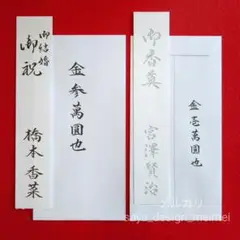 御結婚
御祝
橋本香菜
金参萬圓也
御香奠
宮澤賢治
金壱萬圓也
メルカリ